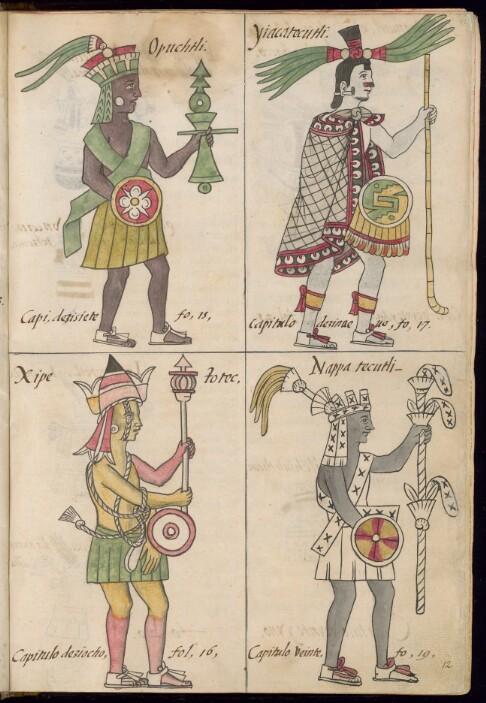 Opuchtli.
Capi. desisiete fo, 18,
Yiacatecutli.
Capitulo desinueuo, fo, 17.
Xipe totec,
Capitulo desiocho, fol, 16,
Nappa tecutli—
Capitulo Veinte, fo, 19,
12